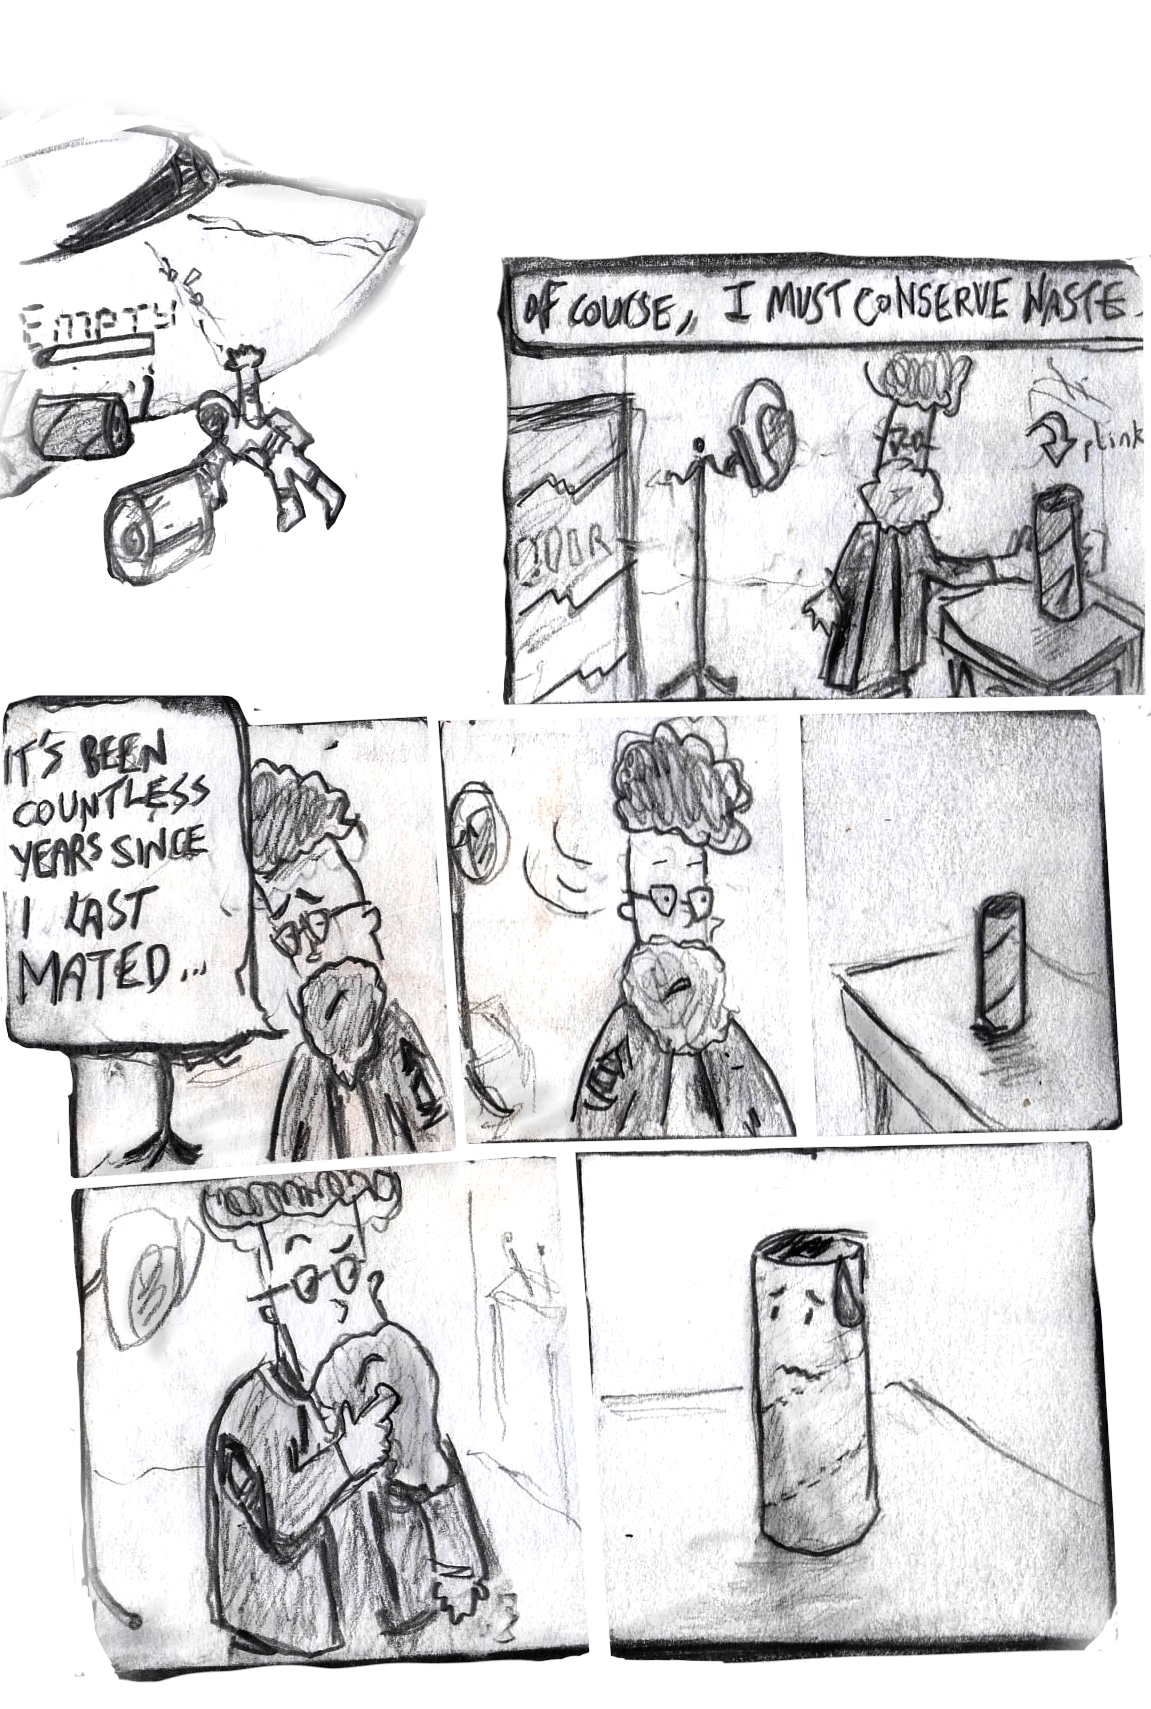 EMPTY
OF COURSE, I MUST CONSERVE WASTE.
DOOR
plink
IT'S BEEN
COUNTLESS
YEARS SINCE
I LAST
MATED...